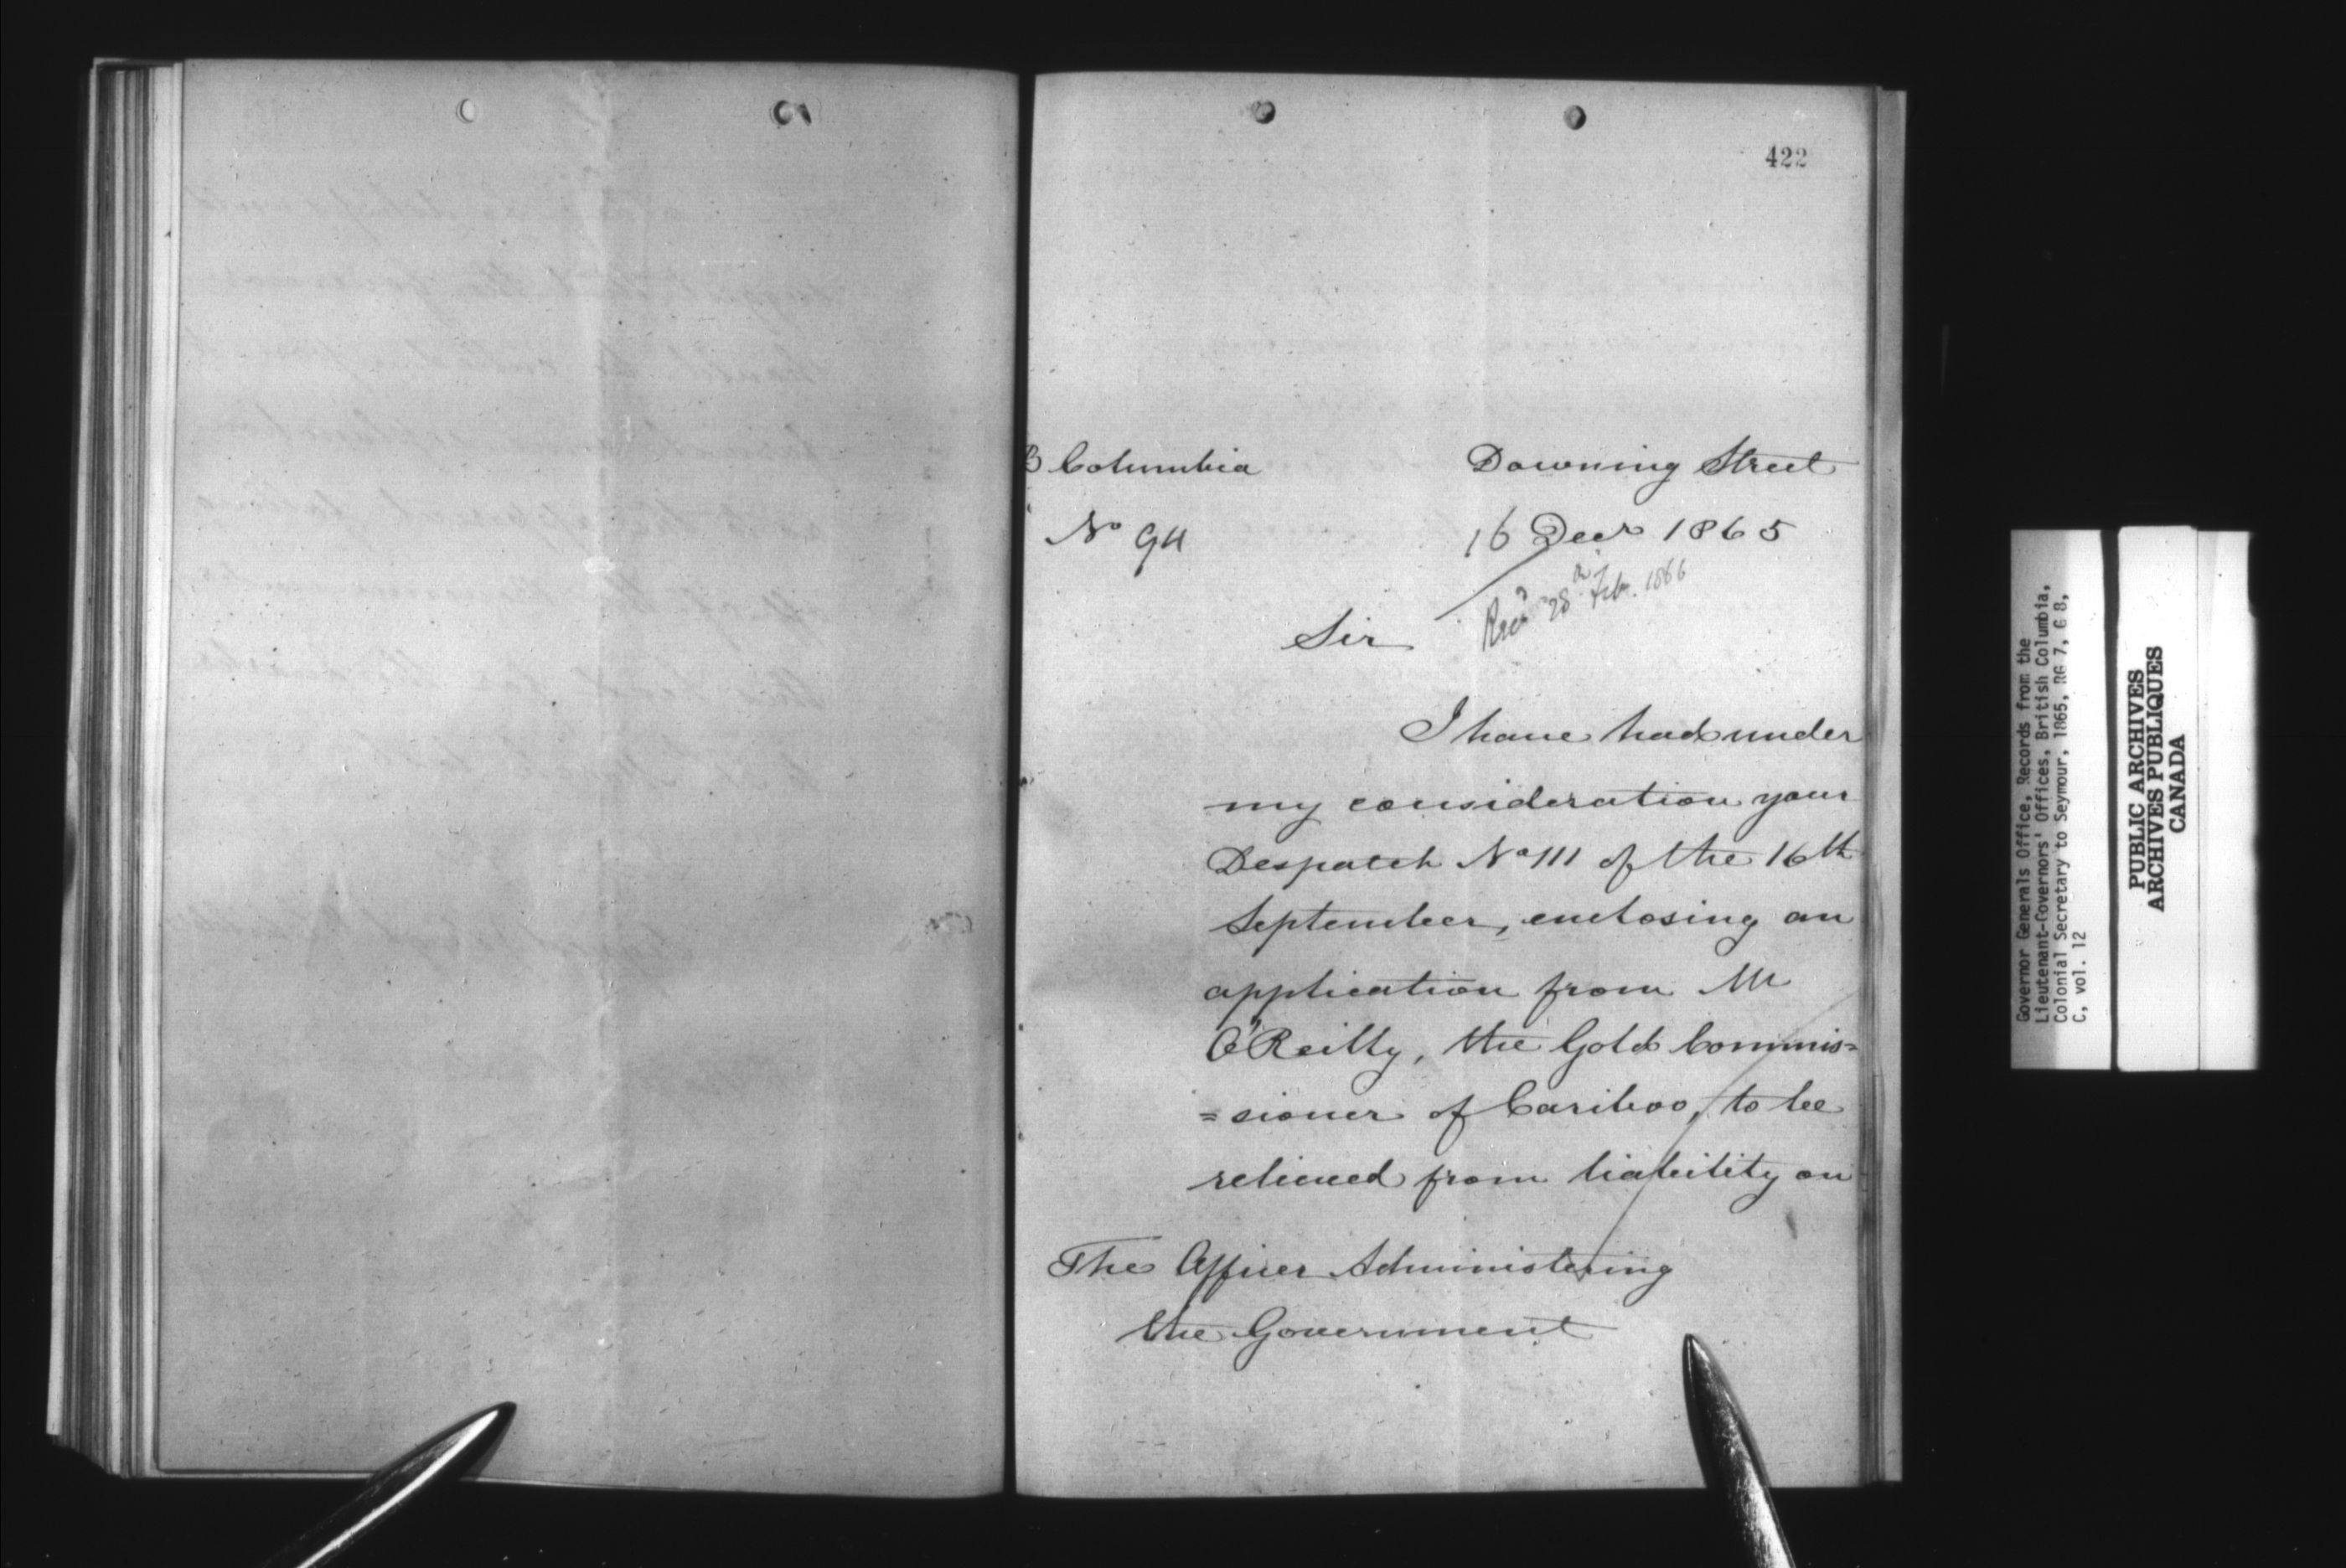 422
B Columbia
Downing Street
No 94
16 Decr 1865
Recd 28th Feb. 1866
Sir
I have had under
my consideration your
Despatch No 111 of the 16th
September, enclosing an
application from Mr
O'Reilly, the Gold Commis=
=sioner of Cariboo, to be
relieved from liability on
The Officer Administering
the Government
Governor Generals Office, Records from the
Lieutenant-Governors' Offices, British Columbia,
Colonial Secretary to Seymour, 1865, RG 7, G 8,
C, vol. 12
PUBLIC ARCHIVES
ARCHIVES PUBLIQUES
CANADA